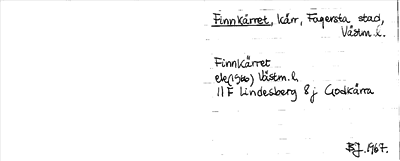 Finnkärret, kärr, Fagersta stad,
Västm.l.
Finnkärret
ek(1966) Västm.l.
11F Lindesberg 8j Godkärra
BJ.1967.